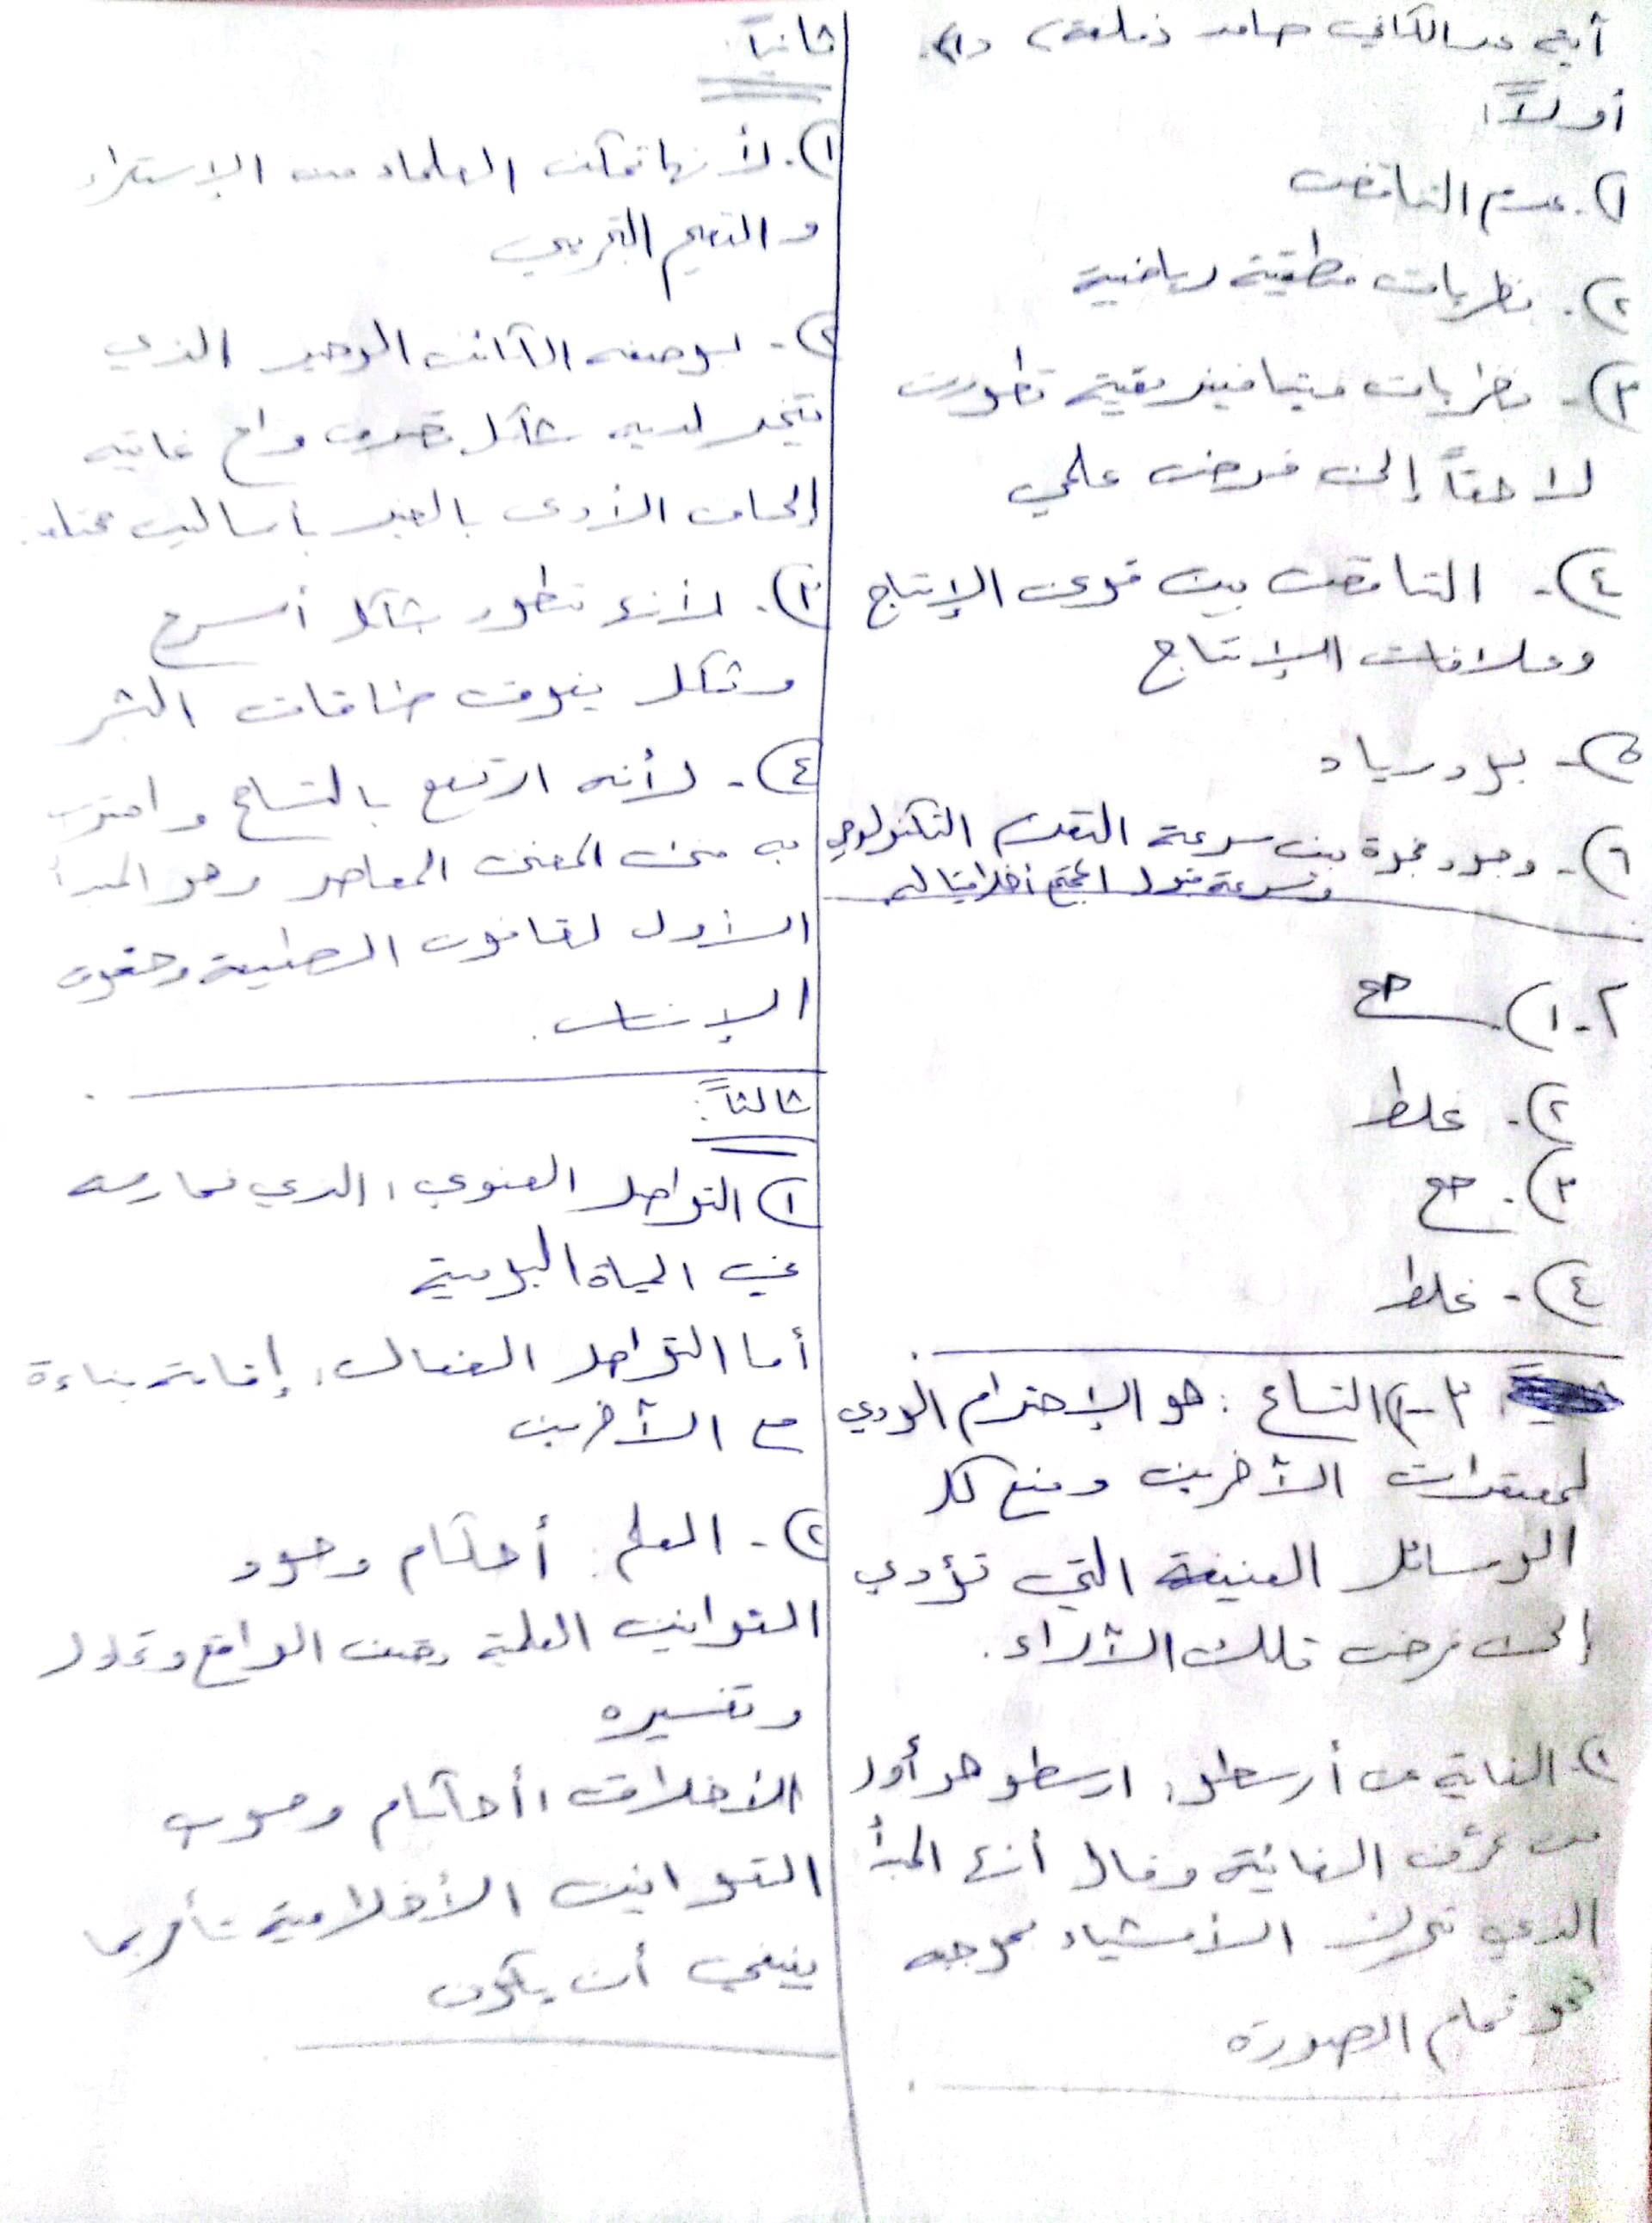 عبد الكافي حامد
أولاً:
١). عدم التناقض
٢). نظريات منطقية رياضية
٣). نظريات ميتافيزيقية تطورت
لاحقاً إلى فرض علمي
٤). التناقض بين قوى الإنتاج
وعلاقات الإنتاج
٥). بودريار
٦). وجود فجوة بين سرعة التقدم التكنولوجي
وسرعة قبول المجتمع أخلاقيا له
٢-١) صح
٢). غلط
٣). صح
٤). غلط
٣-١) التسامح: هو الإحترام الودي
لمعتقدات الآخرين ومنع كل
الوسائل العنيفة التي تؤدي
إلى فرض تلك الآراء.
٢. الغاية عن أرسطو: ارسطو هو أول
من عرّف الغائية وقال أنها المبدأ
الذي تحرك الأشياء بموجبه
نحو تمام الصورة
ثانياً:
١). لأنها تمكن العلماء من الإستقراء
و التعميم التجريبي
٢). بوصفه الكائن الوحيد الذي
يتخذ لديه شكل تصرف واع غايته
إلحاق الأذى بالغير بأساليب
٣). لأنها تتطور بشكل أسرع
وبشكل يفوق طاقات البشر
٤). لأنه ارتفع بالتسامح واقترب
به من المعنى المعاصر وهو المبدأ
الأول لقانون الطبيعة وحقوق
الإنسان.
ثالثاً:
١) التواصل العفوي: الذي نمارسه
في الحياة اليومية
أما التواصل الفعال: إقامة بناءة
مع الآخرين
٢). العلم: أحكام وجود
القوانين العلمية تصف الواقع
وتفسيره
الأخلاق: أحكام وجوب
القوانين الأخلاقية تأمر بما
ينبغي أن يكون